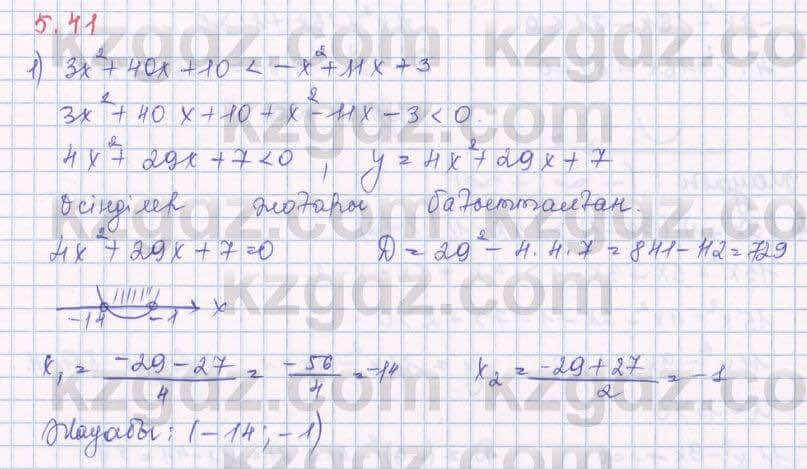 5.41
1) 3x²+40x+10 < -x²+11x+3
3x²+40x+10+x²-11x-3<0.
4x²+29x+7<0, y=4x²+29x+7
Өсінділер жоғары бағытталған.
4x²+29x+7=0 D=29²-4·4·7=841-112=729
-14 -1 x
x₁ = (-29-27)/4 = -56/4 = -14 x₂ = (-29+27)/2 = -1
Жауабы: (-14; -1)
kzgdz.com